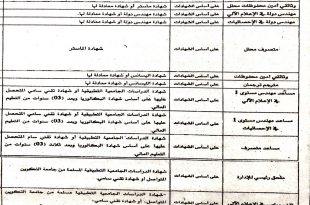 وثائقي أمين محفوظات محلل
على أساس الشهادات
شهادة ماستر أو شهادة معادلة لها
مهندس دولة في الإعلام الآلي
على أساس الشهادات
شهادة مهندس دولة أو شهادة معادلة لها
مهندس دولة في الإحصائيات
على أساس الشهادات
شهادة مهندس دولة أو شهادة معادلة لها
متصرف محلل
على أساس الشهادات
شهادة الماستر
وثائقي أمين محفوظات
على أساس الشهادات
شهادة الليسانس أو شهادة معادلة لها
مترجم ترجمان
على أساس الشهادات
شهادة الليسانس أو شهادة معادلة لها
مساعد مهندس مستوى 1
في الإعلام الآلي
على أساس الشهادات
شهادة الدراسات الجامعية التطبيقية أو شهادة تقني سامي المتحصل
عليها على أساس شهادة البكالوريا وبعد (03) سنوات من التعليم
العالي.
مساعد مهندس مستوى 1
في الإحصائيات
على أساس الشهادات
شهادة الدراسات الجامعية التطبيقية أو شهادة تقني سامي المتحصل
عليها على أساس شهادة البكالوريا وبعد (03) سنوات من التعليم
العالي.
مساعد متصرف
على أساس الشهادات
شهادة الدراسات الجامعية التطبيقية أو شهادة تقني سام المتحصل
عليها على أساس شهادة البكالوريا وبعد ثلاث (03) سنوات من
التعليم العالي
ملحق رئيسي للإدارة
على أساس الشهادات
شهادة الدراسات الجامعية التطبيقية المسلمة من جامعة التكوين
المتواصل أو شهادة تقني سامي.